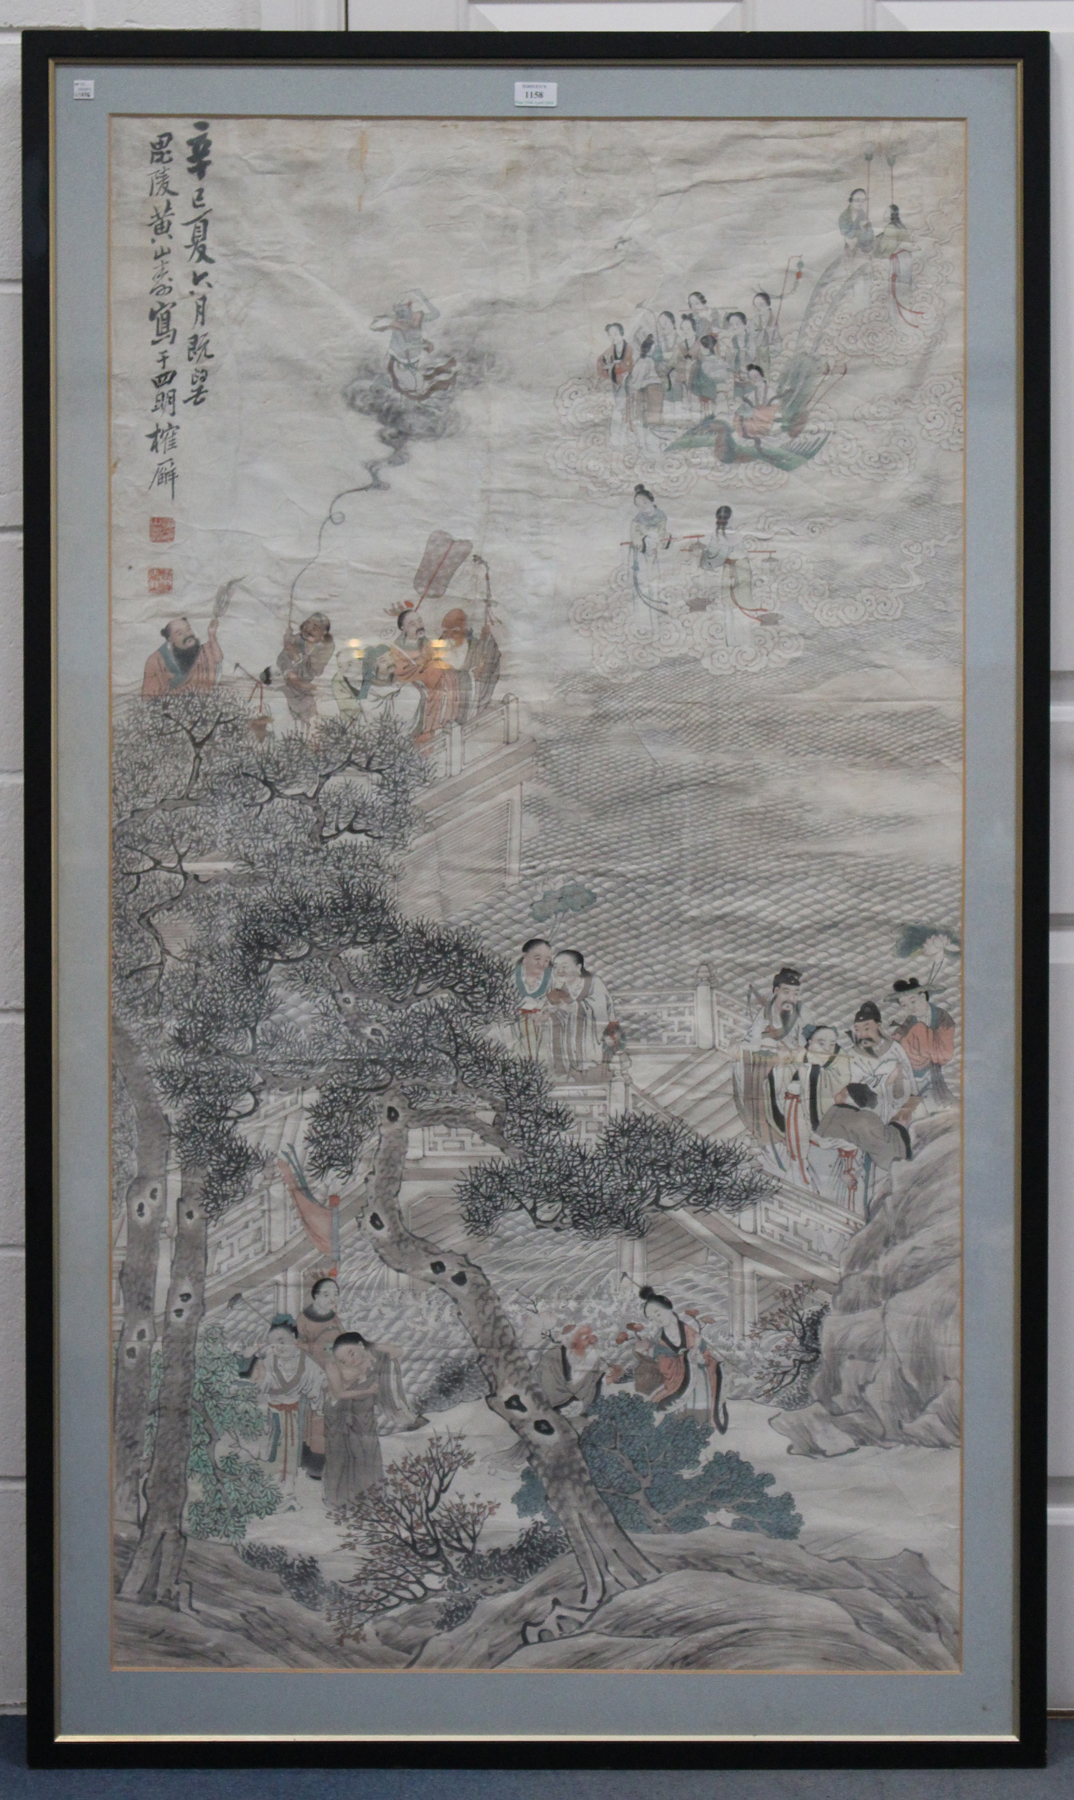 辛巳夏六月既望
毘陵黄山壽寫于四明榷廨
1158